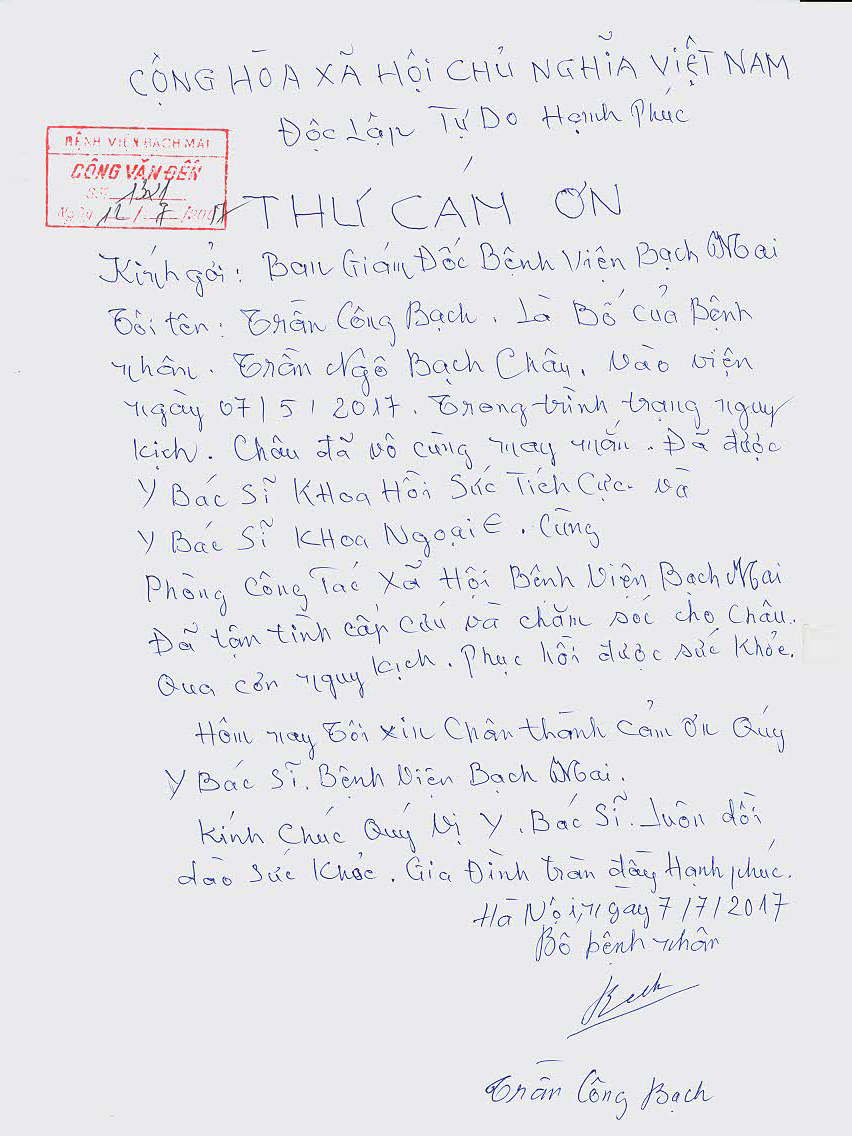 CỘNG HÒA XÃ HỘI CHỦ NGHĨA VIỆT NAM
Độc Lập Tự Do Hạnh Phúc
BỆNH VIỆN BẠCH MAI
CÔNG VĂN ĐẾN
Số: 1321
Ngày 12/ 7 /20
THƯ CÁM ƠN
Kính gởi: Ban Giám Đốc Bệnh Viện Bạch Mai
Tôi tên: Trần Công Bạch. Là Bố của Bệnh
nhân. Trần Ngô Bạch Châu. Vào viện
ngày 07/5/2017. Trong trình trạng nguy
kịch. Châu đã vô cùng may mắn. Đã được
Y Bác Sĩ KHoa Hồi Sức Tích Cực. và
Y Bác Sĩ KHoa Ngoại E. Cùng
Phòng Công Tác Xã Hội Bệnh Viện Bạch Mai
Đã tận tình cấp cứu và chăm sóc cho Châu.
Qua cơn nguy kịch. Phục hồi được sức khỏe.
Hôm nay Tôi xin Chân thành Cảm ơn Quý
Y Bác Sĩ. Bệnh Viện Bạch Mai.
Kính Chúc Quý Vị Y. Bác Sĩ. Luôn dồi
dào Sức Khỏe. Gia Đình tràn đầy Hạnh phúc.
Hà Nội, ngày 7/7/2017
Bố bệnh nhân
Bạch
Trần Công Bạch